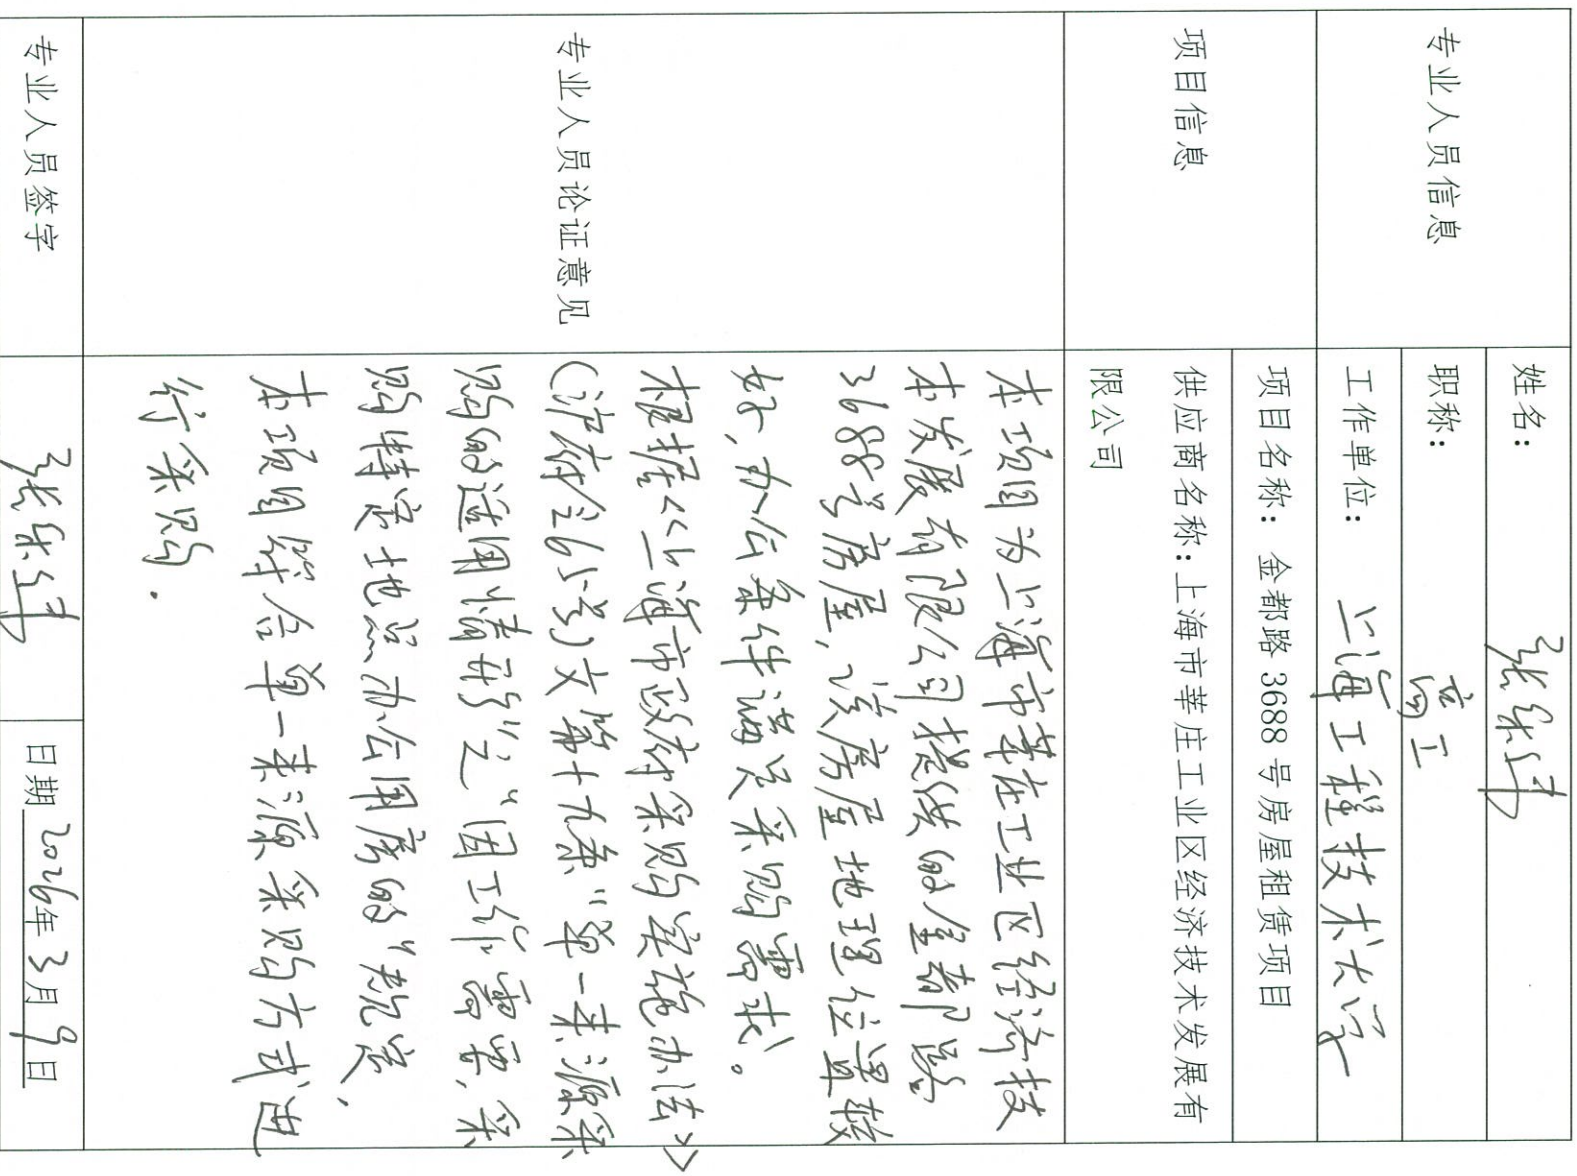 专业人员信息
姓名：
职称： 高工
工作单位： 上海工程技术大学
项目信息
项目名称： 金都路 3688 号房屋租赁项目
供应商名称：上海市莘庄工业区经济技术发展有
限公司
专业人员论证意见
本项目为上海市莘庄工业区经济技
术发展有限公司提供的金都路
3688号房屋，该房屋地理位置较
好，办公条件满足采购需求。
根据《上海市政府采购实施办法》
（沪府令65号）文第十九条“单一来源采
购的适用情形”之“因工作需要，采
购特定地点办公用房的”规定，
本项目符合单一来源采购方式进
行采购.
专业人员签字
日期 2026年3月9日